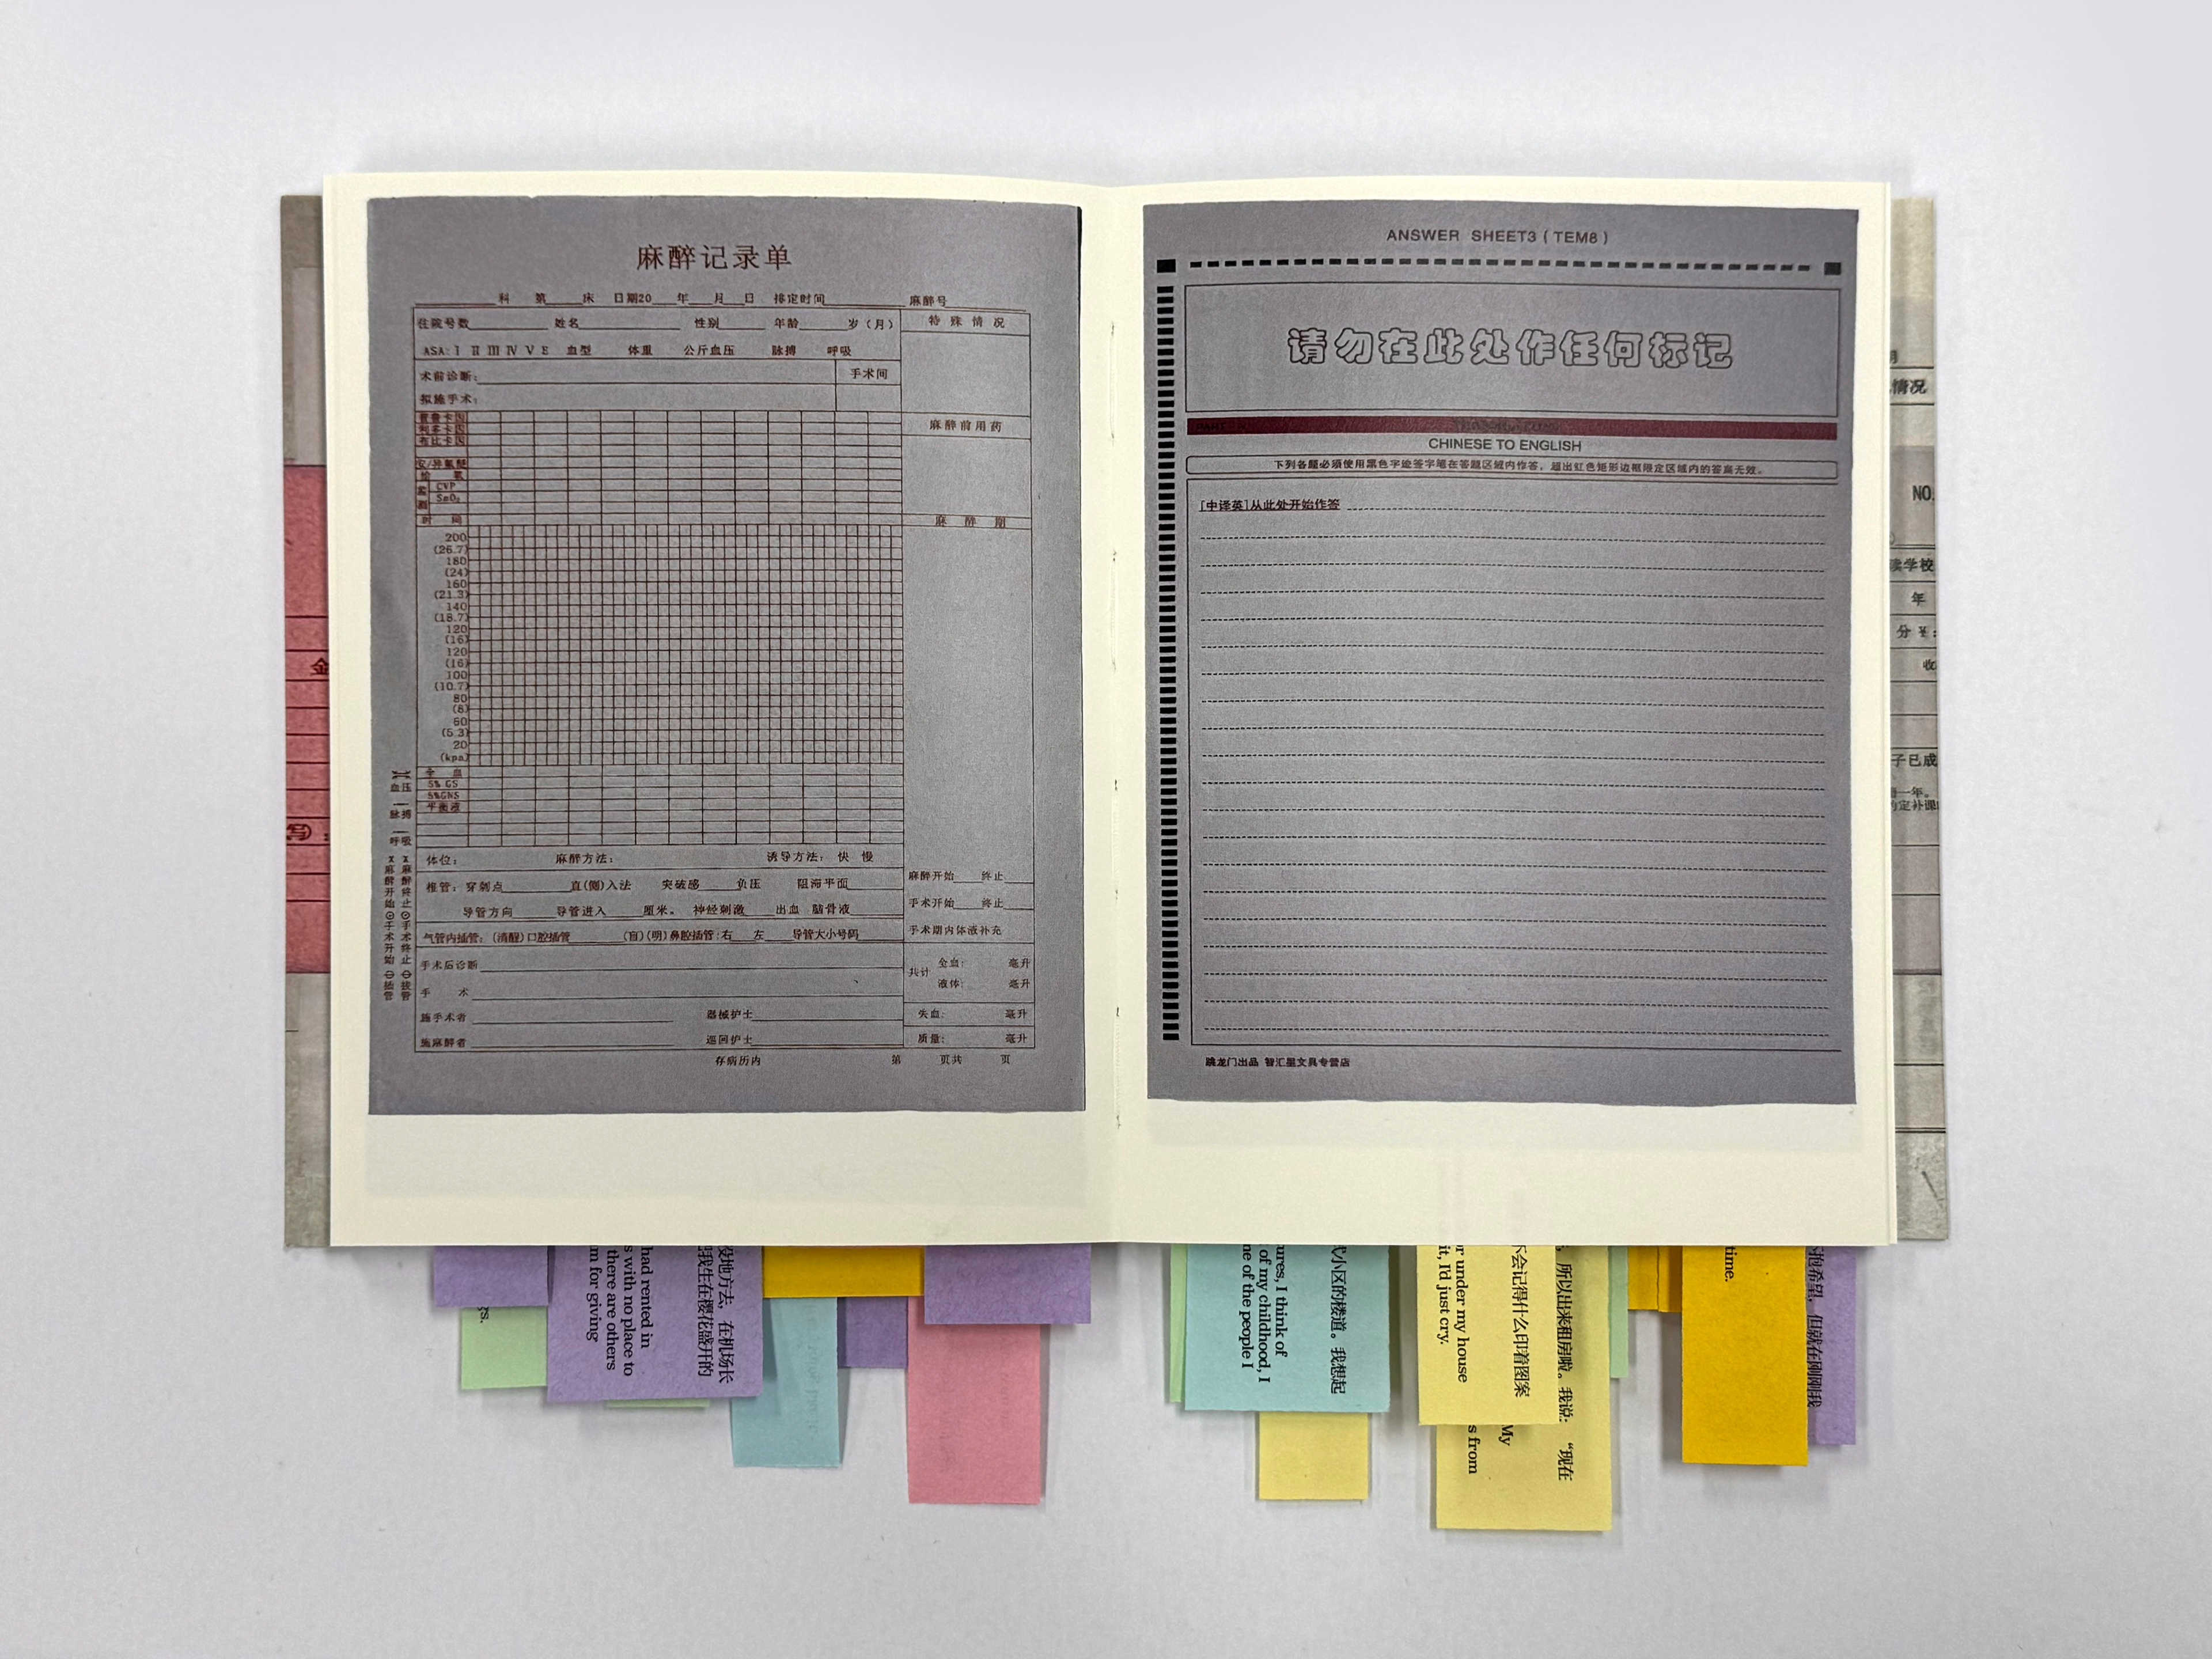 麻醉记录单
科 第 床 日期20 年 月 日 排定时间 麻醉号
住院号数 姓名 性别 年龄 岁（月） 特殊情况
ASA: I II III IV V E 血型 体重 公斤血压 脉搏 呼吸
术前诊断: 手术间
拟施手术:
普鲁卡因
利多卡因 麻醉前用药
布比卡因
安/异氟醚
给 氧
监测 CVP
SaO₂
时 间 麻 醉 期
200
(26.7)
180
(24)
160
(21.3)
140
(18.7)
120
(16)
120
(16)
100
(10.7)
80
(8)
60
(5.3)
20
(kpa)
全 血
5% GS
5%GNS
平衡液
血压
脉搏
呼吸
x 麻醉开始 ⊙手术开始 Φ插管
x 麻醉终止 ⊙手术终止 Φ拔管
体位: 麻醉方法: 诱导方法: 快 慢
椎管: 穿刺点 直(侧)入法 突破感 负压 阻滞平面
导管方向 导管进入 厘米。 神经刺激 出血 脑骨液
气管内插管: (清醒)口腔插管 (盲)(明)鼻腔插管:右 左 导管大小号码
手术后诊断
手 术
施手术者 器械护士
施麻醉者 巡回护士
麻醉开始 终止
手术开始 终止
手术期内体液补充
共计 全血: 毫升
液体: 毫升
失血: 毫升
质量: 毫升
存病历内 第 页共 页
ANSWER SHEET3 ( TEM8 )
请勿在此处作任何标记
CHINESE TO ENGLISH
下列各题必须使用黑色字迹签字笔在答题区域内作答，超出红色矩形边框限定区域内的答案无效。
[中译英]从此处开始作答
跳龙门出品 智汇星文具专营店
金
情况
NO.
读学校
年
分
收
子已成
一年。
定补课
没地方去，在机场长
我生在樱花盛开的
had rented in
s with no place to
there are others
m for giving
式小区的楼道。我想起
ures, I think of
of my childhood, I
ne of the people I
不会记得什么印着图案
or under my house
it, I'd just cry.
所以出来租房啦。我说：“现在
My
s from
time.
抱希望，但就在刚刚我